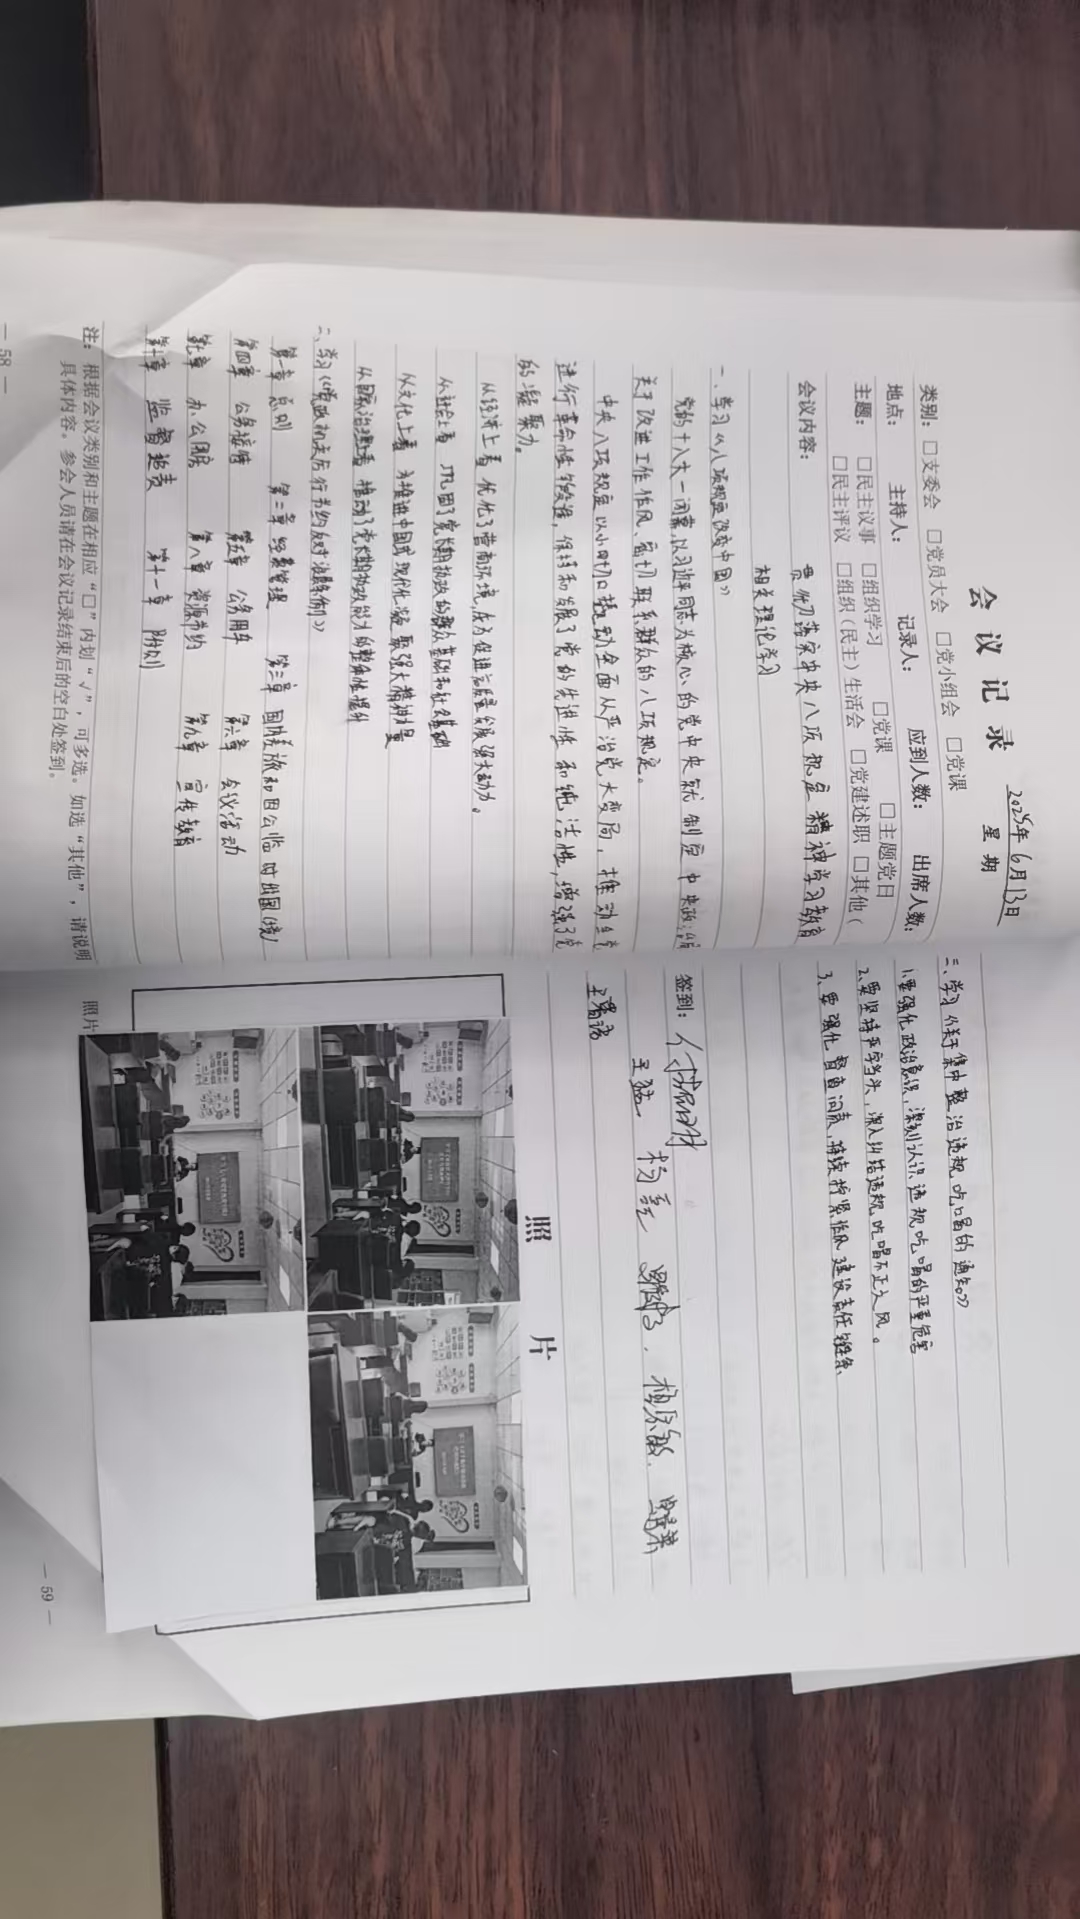 会议记录
2025年6月13日
星期
类别：□支委会 □党员大会 □党小组会 □党课
地点： 主持人： 记录人： 应到人数： 出席人数：
主题：□民主议事 □组织学习 □党课 □主题党日
□民主评议 □组织（民主）生活会 □党建述职 □其他（
会议内容： 贯彻落实中央八项规定精神学习教育
相关理论学习
一、学习《八项规定改变中国》
党的十八大一闭幕，以习近平同志为核心的党中央就制定中央政治局
关于改进工作作风、密切联系群众的八项规定。
中央八项规定以小切口推动全面从严治党大变局，推动全党
进行革命性锻造，保持和发展了党的先进性和纯洁性，增强了党
的凝聚力。
从经济上看 优化了营商环境，为促进高质量发展强大动力。
从社会上看 巩固了党长期执政的群众基础和社会基础
从文化上看 为推进中国式现代化凝聚强大精神力量
从国家治理上看 推动了党长期执政能力的整体性提升
二、学习《党政机关厉行节约反对浪费条例》
第一章 总则 第二章 经费管理 第三章 国内差旅和因公临时出国(境)
第四章 公务接待 第五章 公务用车 第六章 会议活动
第七章 办公用房 第八章 资源节约 第九章 宣传教育
第十章 监督追责 第十一章 附则
注：根据会议类别和主题在相应“□”内划“√”，可多选。如选“其他”，请说明
具体内容。参会人员请在会议记录结束后的空白处签到。
— 58 —
三、学习《关于集中整治违规吃喝的通知》
1.要强化政治意识，深刻认识违规吃喝的严重危害
2.要坚持严字当头，深入纠治违规吃喝不正之风。
3.要强化督查问责，持续拧紧作风建设责任链条
签到：
照片
照片
— 59 —